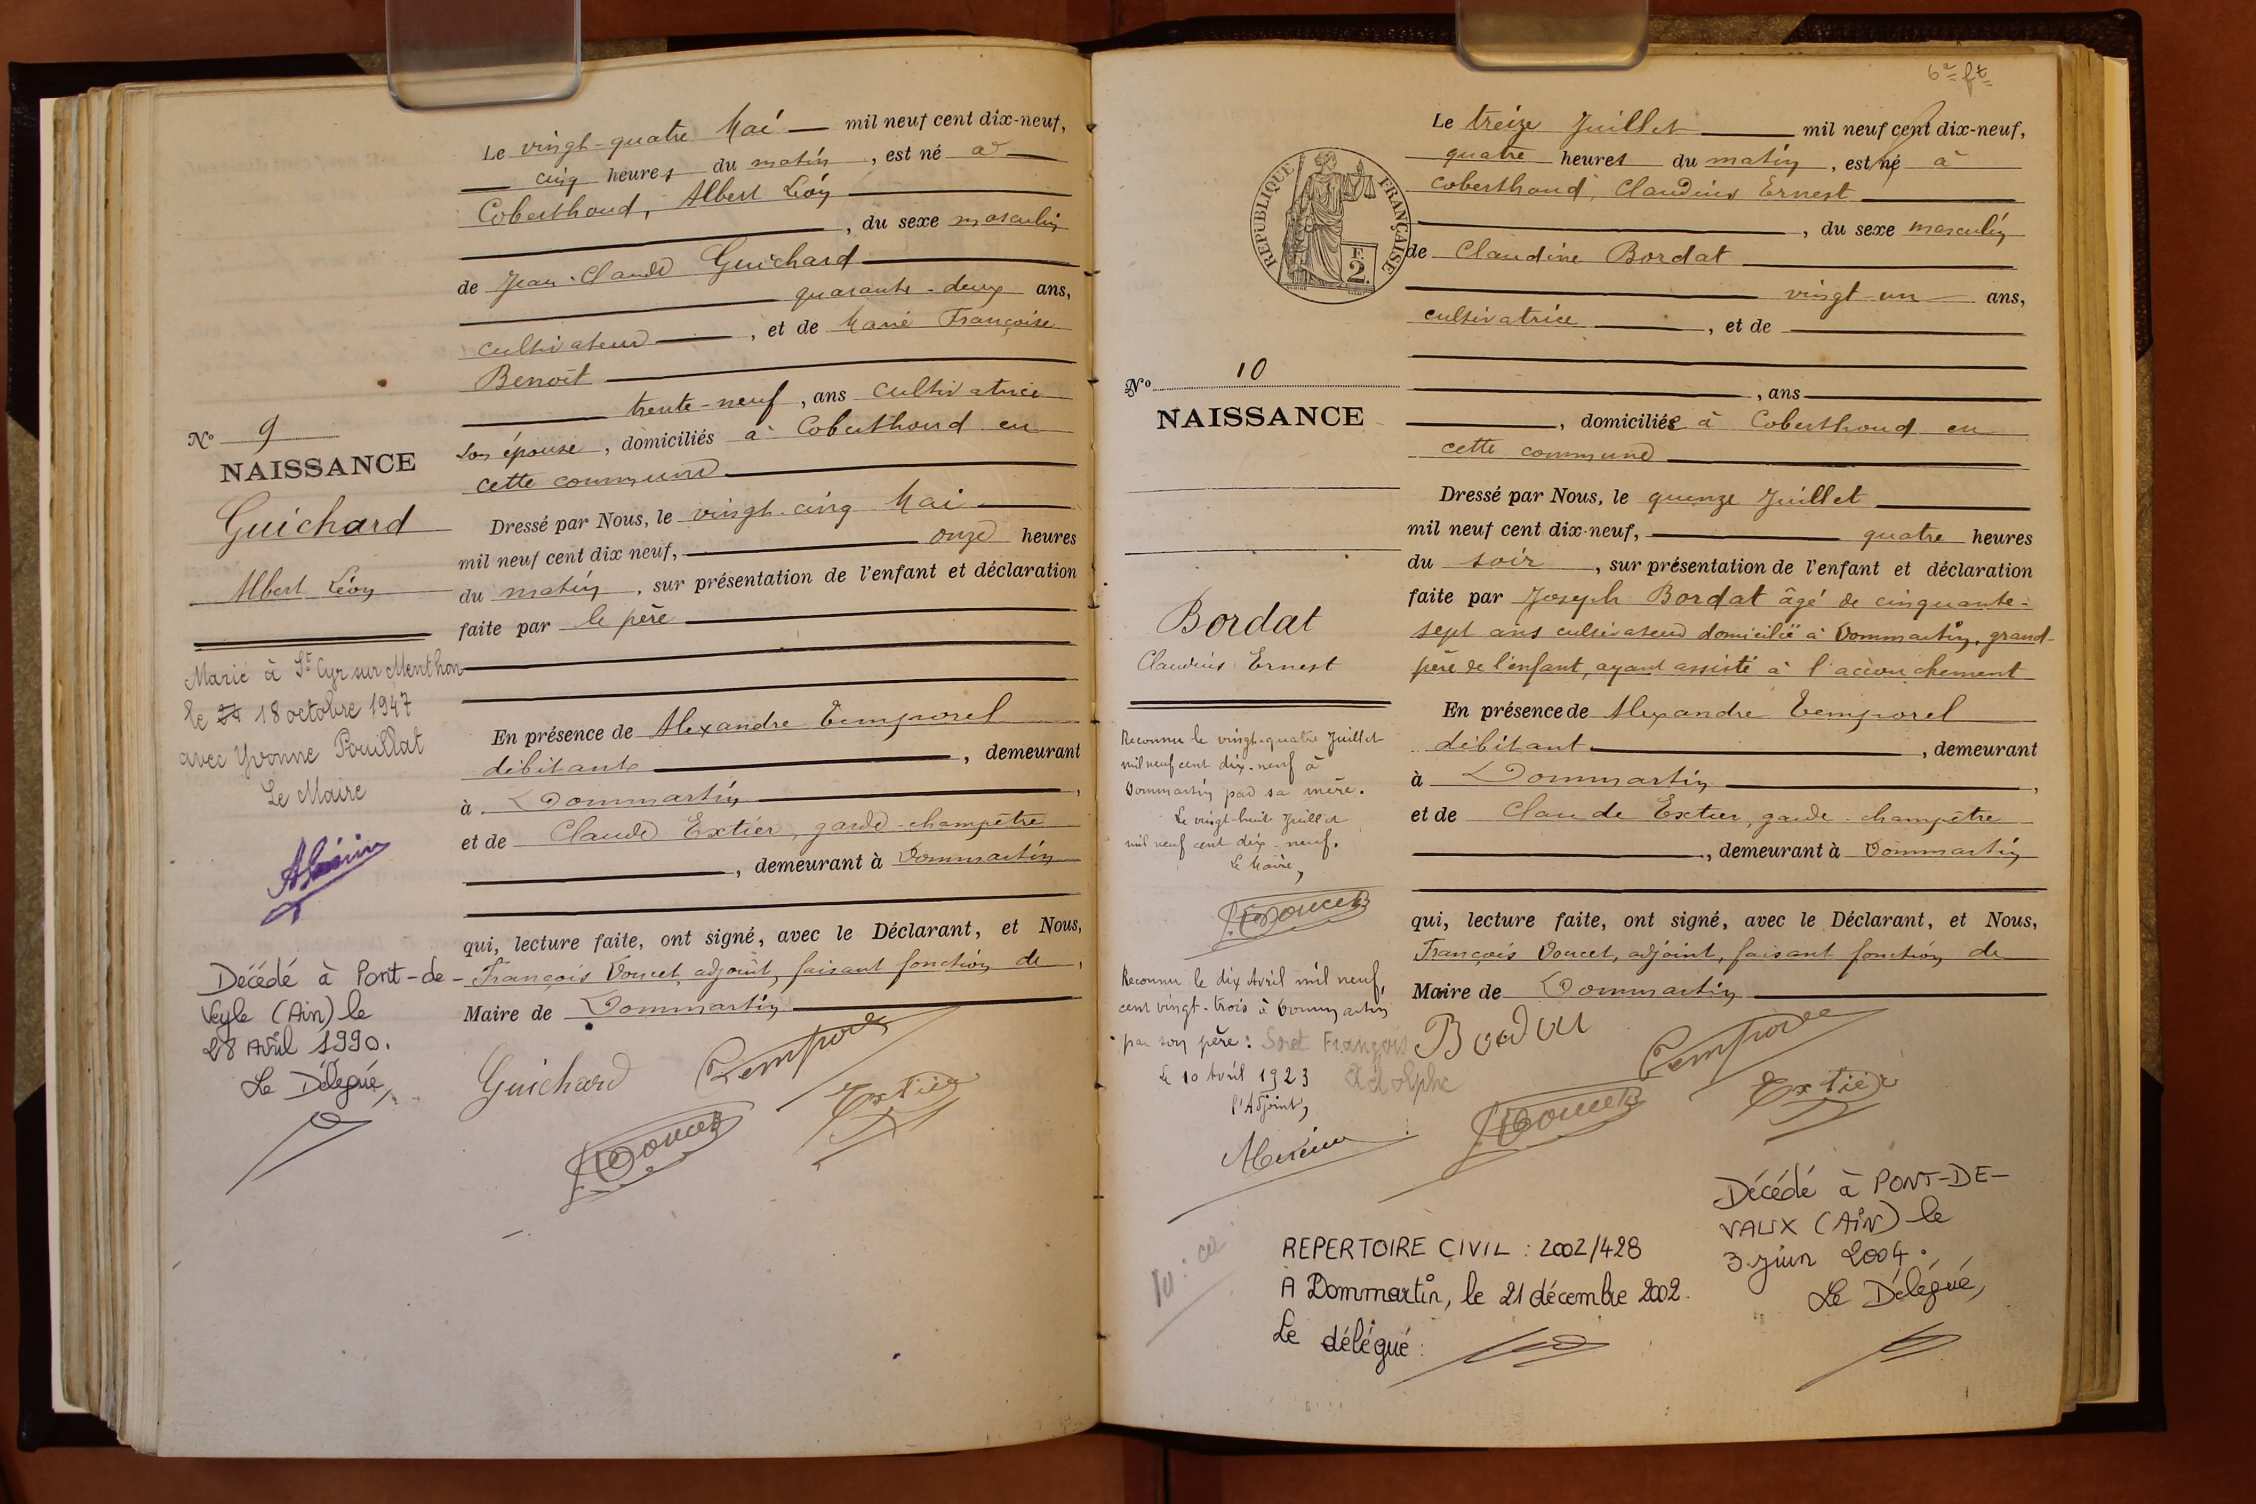 Le vingt-quatre Mai mil neuf cent dix-neuf,
cinq heures du matin, est né à
Coberthoud, Albert Léon
, du sexe masculin
de Jean-Claude Guichard
quarante-deux ans,
cultivateur, et de Marie Françoise
Benoît
trente-neuf, ans cultivatrice
son épouse, domiciliés à Coberthoud en
cette commune
Dressé par Nous, le vingt-cinq Mai
mil neuf cent dix neuf, onze heures
du matin, sur présentation de l'enfant et déclaration
faite par le père
En présence de Alexandre Temporel
débitant, demeurant
à Dommartin,
et de Claude Extier, garde-champêtre
, demeurant à Dommartin
qui, lecture faite, ont signé, avec le Déclarant, et Nous,
François Doucet, adjoint, faisant fonction de,
Maire de Dommartin
Guichard Temporel
Extier
Doucet
No 9
NAISSANCE
Guichard
Albert Léon
Marié à St Cyr sur Menthon
le 18 octobre 1947
avec Yvonne Pouillat
Le Maire
Décédé à Pont-de-
Veyle (Ain) le
28 Avril 1990.
Le Délégué,
6e ft
Le treize Juillet mil neuf cent dix-neuf,
quatre heures du matin, est né à
Coberthoud, Claudius Ernest
, du sexe masculin
de Claudine Bordat
vingt-un ans,
cultivatrice, et de
, ans
, domiciliée à Coberthoud en
cette commune
Dressé par Nous, le quinze Juillet
mil neuf cent dix-neuf, quatre heures
du soir, sur présentation de l'enfant et déclaration
faite par Joseph Bordat âgé de cinquante-
sept ans cultivateur domicilié à Dommartin, grand-
père de l'enfant, ayant assisté à l'accouchement
En présence de Alexandre Temporel
débitant, demeurant
à Dommartin,
et de Claude Extier, garde-champêtre
, demeurant à Dommartin
qui, lecture faite, ont signé, avec le Déclarant, et Nous,
François Doucet, adjoint, faisant fonction de
Maire de Dommartin
Temporel
Doucet Extier
REPUBLIQUE FRANÇAISE
2F.
No 10
NAISSANCE
Bordat
Claudius Ernest
Reconnu le vingt-quatre Juillet
mil neuf cent dix-neuf à
Dommartin par sa mère.
Le vingt-huit Juillet
mil neuf cent dix-neuf.
Le Maire,
Doucet
Reconnu le dix Avril mil neuf
cent vingt-trois à Dommartin
par son père: Soret François
Adolphe
Le 10 Avril 1923
l'Adjoint,
REPERTOIRE CIVIL : 2002/428
A Dommartin, le 21 décembre 2002.
Le délégué :
Décédé à PONT-DE-
VAUX (AIN) le
3 juin 2004.
Le Délégué,